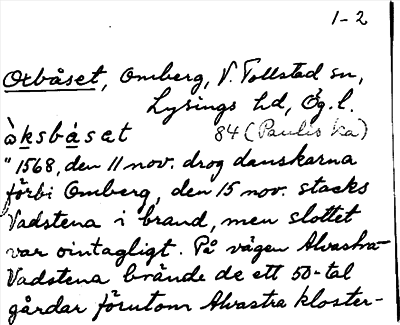 1-2
Oxbåset, Omberg, V. Tollstad sn,
Lysings hd, Ög. l.
àksbáset 84 (Paulis ka)
"1568, den 11 nov. drog danskarna
förbi Omberg, den 15 nov. stacks
Vadstena i brand, men slottet
var ointagligt. På vägen Alvastra-
Vadstena brände de ett 50-tal
gårdar förutom Alvastra kloster-